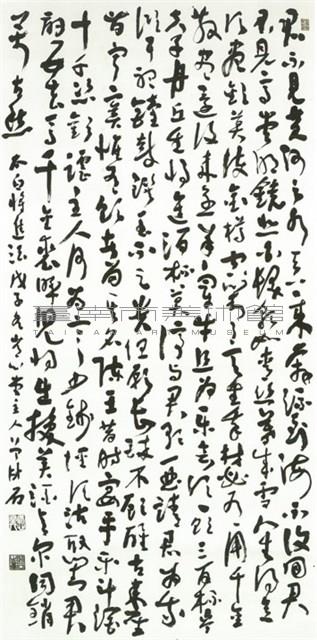 君不見黃河之水天上來奔流到海不復回君
不見高堂明鏡悲白髮朝如青絲暮成雪人生得意
須盡歡莫使金樽空對月天生我材必有用千金
散盡還復來烹羊宰牛且為樂會須一飲三百杯岑
夫子丹丘生將進酒杯莫停與君歌一曲請君為我
傾耳聽鐘鼓饌玉不足貴但願長醉不願醒古來聖賢
皆寂寞惟有飲者留其名陳王昔時宴平樂斗酒
十千恣歡謔主人何為言少錢徑須沽取對君
酌五花馬千金裘呼兒將出換美酒與爾同銷
萬古愁 太白將進酒 戊子冬 主人
臺南市美術館
TAINAN ART MUSEUM